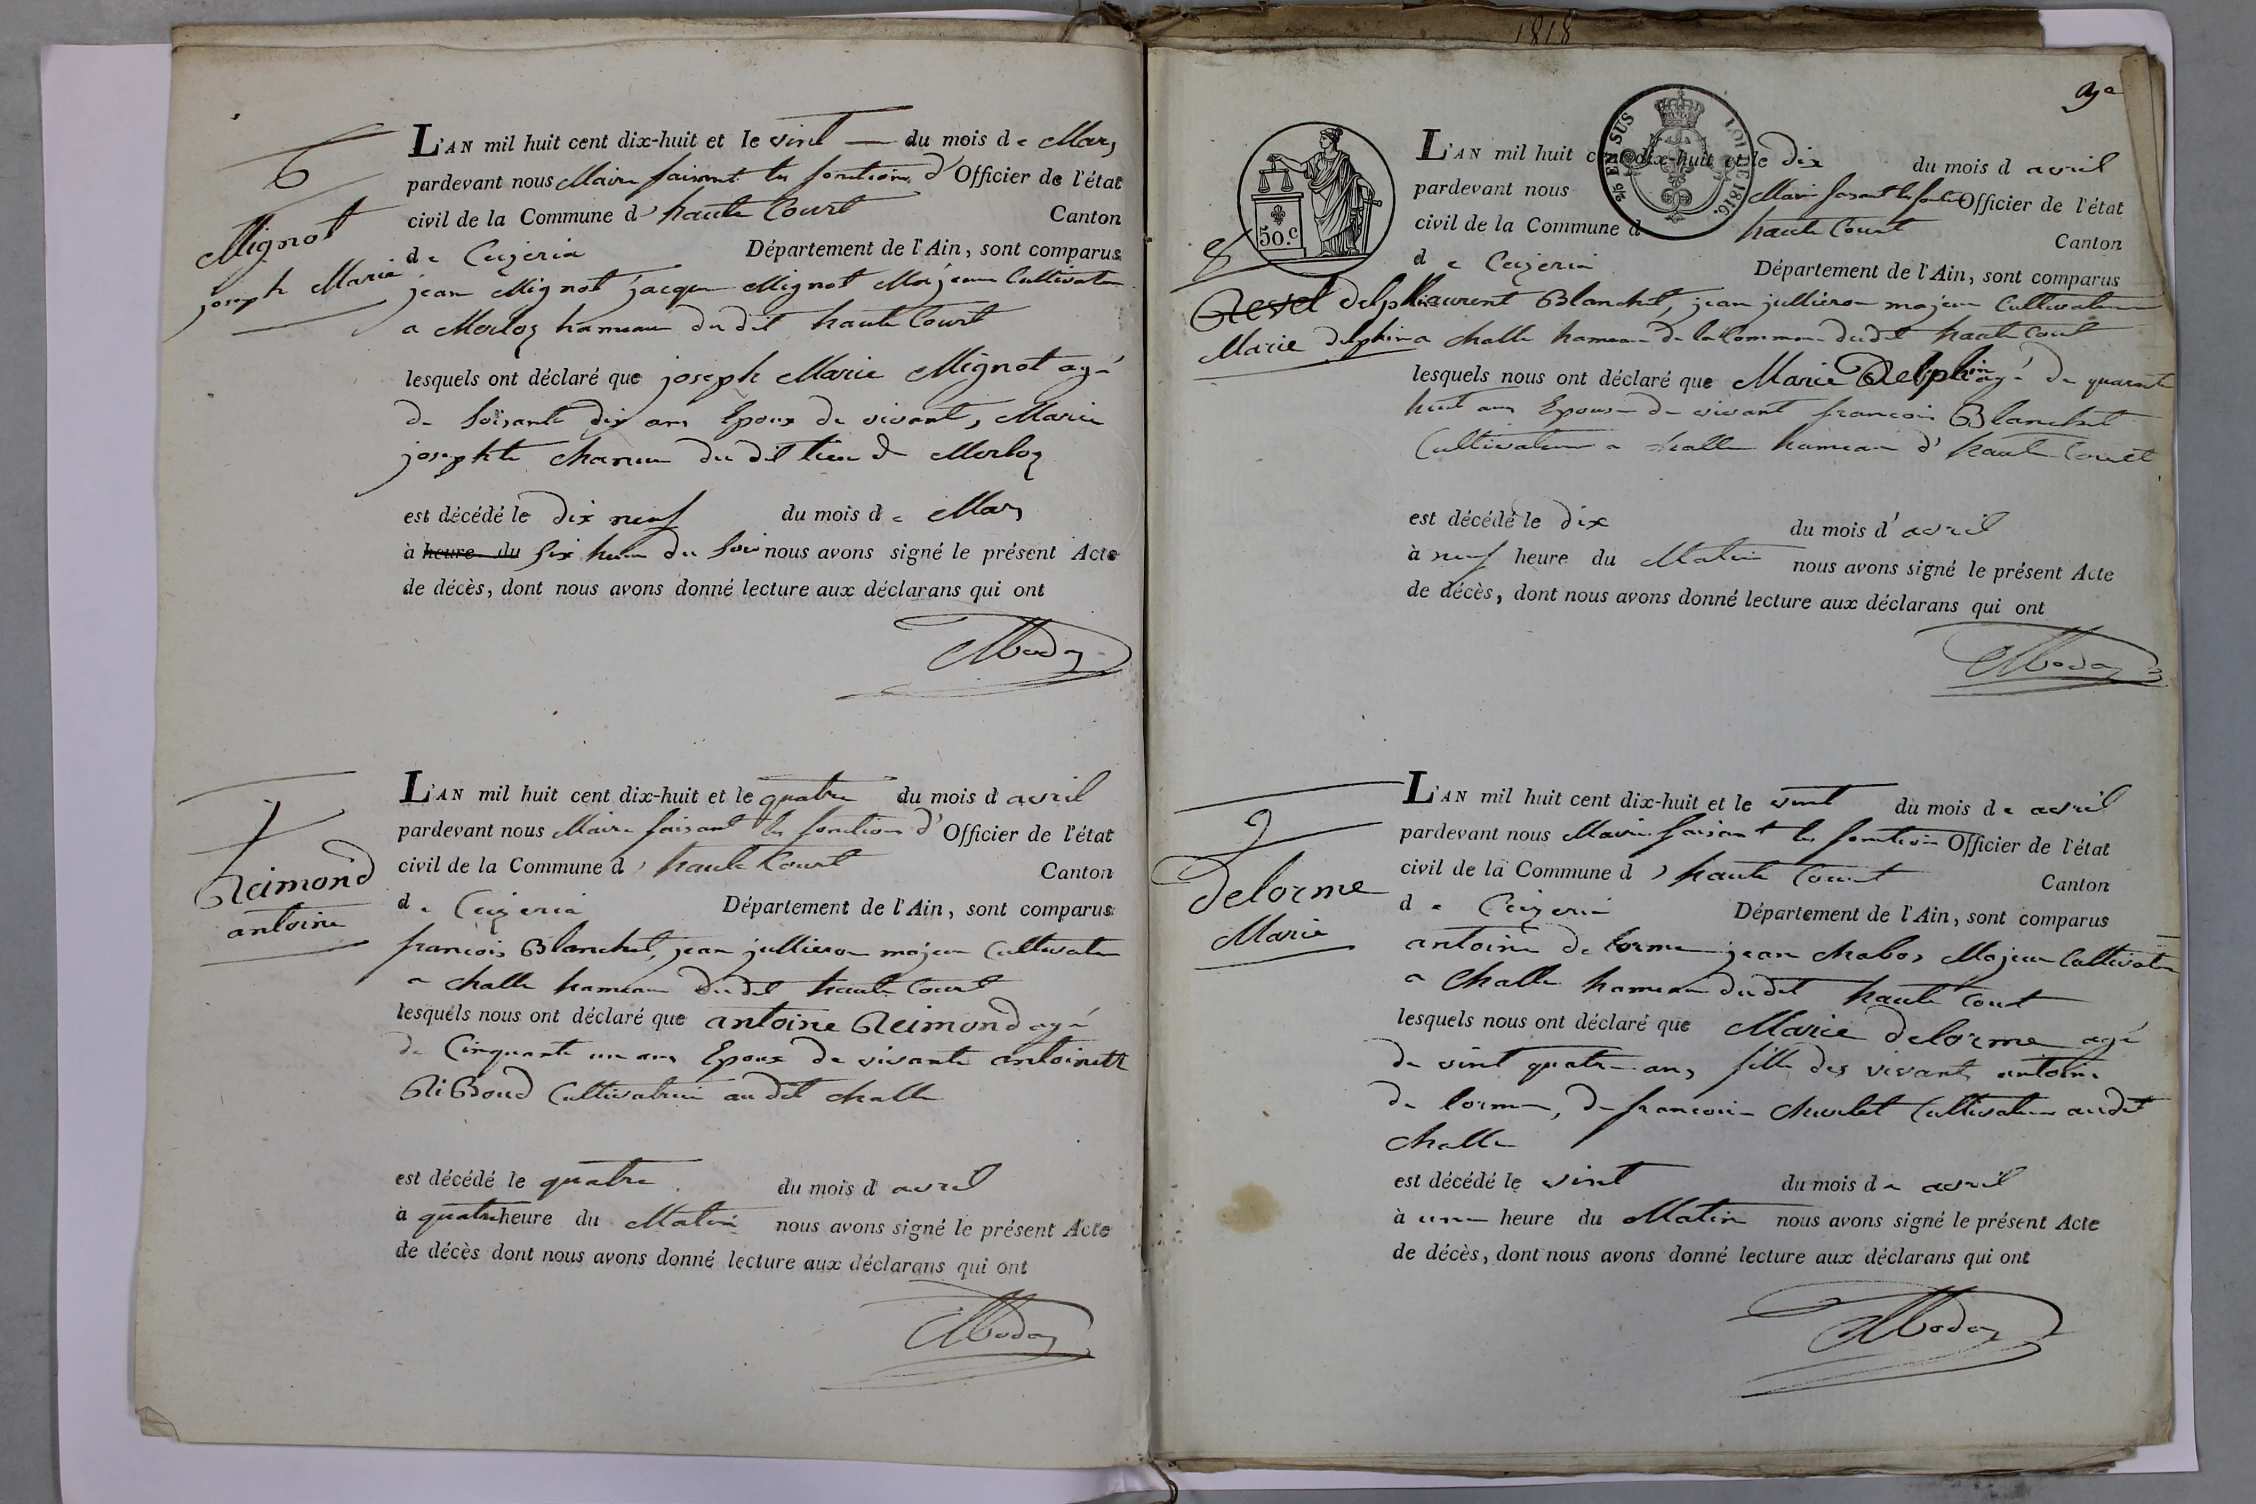 1818
6
Mignot
joseph Marie
L'AN mil huit cent dix-huit et le vint du mois de Mars
pardevant nous Maire faisant les fonctions d'Officier de l'état
civil de la Commune d'haute Court Canton
de Ceizeria Département de l'Ain, sont comparus
jean Mignot jacque Mignot Majeur Cultivateur
a Merloz hameau du dit haute Court
lesquels ont déclaré que joseph Marie Mignot agé
de Soisante dix ans Epoux de vivant, Marie
josephte du dit lieu de Merloz
est décédé le dix neuf du mois de Mars
à heure du Six heure du Soir nous avons signé le présent Acte
de décès, dont nous avons donné lecture aux déclarans qui ont
7
Reimond
antoine
L'AN mil huit cent dix-huit et le quatre du mois d avril
pardevant nous Maire faisant les fonctions d'Officier de l'état
civil de la Commune d'haute Court Canton
de Ceizeria Département de l'Ain, sont comparus
francois Blanchet, jean jullieron majeur Cultivateur
a Challe hameau du dit haute Court
lesquels nous ont déclaré que antoine Reimond agé
de Cinquante un ans Epoux de vivante antoinette
RiBoud Cultivatrice au dit Challe
est décédé le quatre du mois d avril
à quatre heure du Matin nous avons signé le présent Acte
de décès dont nous avons donné lecture aux déclarans qui ont
50.c
2/5 EN SUS LOI DE 1816.
8
Revel delphin
Marie delphin
L'AN mil huit cent dix-huit et le dix du mois d avril
pardevant nous Maire faisant les fonction Officier de l'état
civil de la Commune d haute Court Canton
de Ceizeria Département de l'Ain, sont comparus
Laurent Blanchet, jean jullieron majeur Cultivateur
a Challe hameau de la Commune du dit haute Court
lesquels nous ont déclaré que Marie Delphin agé de quarante
huit ans Epouse de vivant francois Blanchet
Cultivateur a Challe hameau d'haute Court
est décédé le dix du mois d'avril
à neuf heure du Matin nous avons signé le présent Acte
de décès, dont nous avons donné lecture aux déclarans qui ont
9
Delorme
Marie
L'AN mil huit cent dix-huit et le vint du mois de avril
pardevant nous Maire faisant les fonction Officier de l'état
civil de la Commune d'haute Court Canton
de Ceizeria Département de l'Ain, sont comparus
antoine de lorme jean Chabos Majeur Cultivateur
a Challe hameau du dit haute Court
lesquels nous ont déclaré que Marie delorme agé
de vint quatre ans fille des vivants antoine
de lorme, de francoise Cultivateur au dit
Challe
est décédé le vint du mois de avril
à une heure du Matin nous avons signé le présent Acte
de décès, dont nous avons donné lecture aux déclarans qui ont